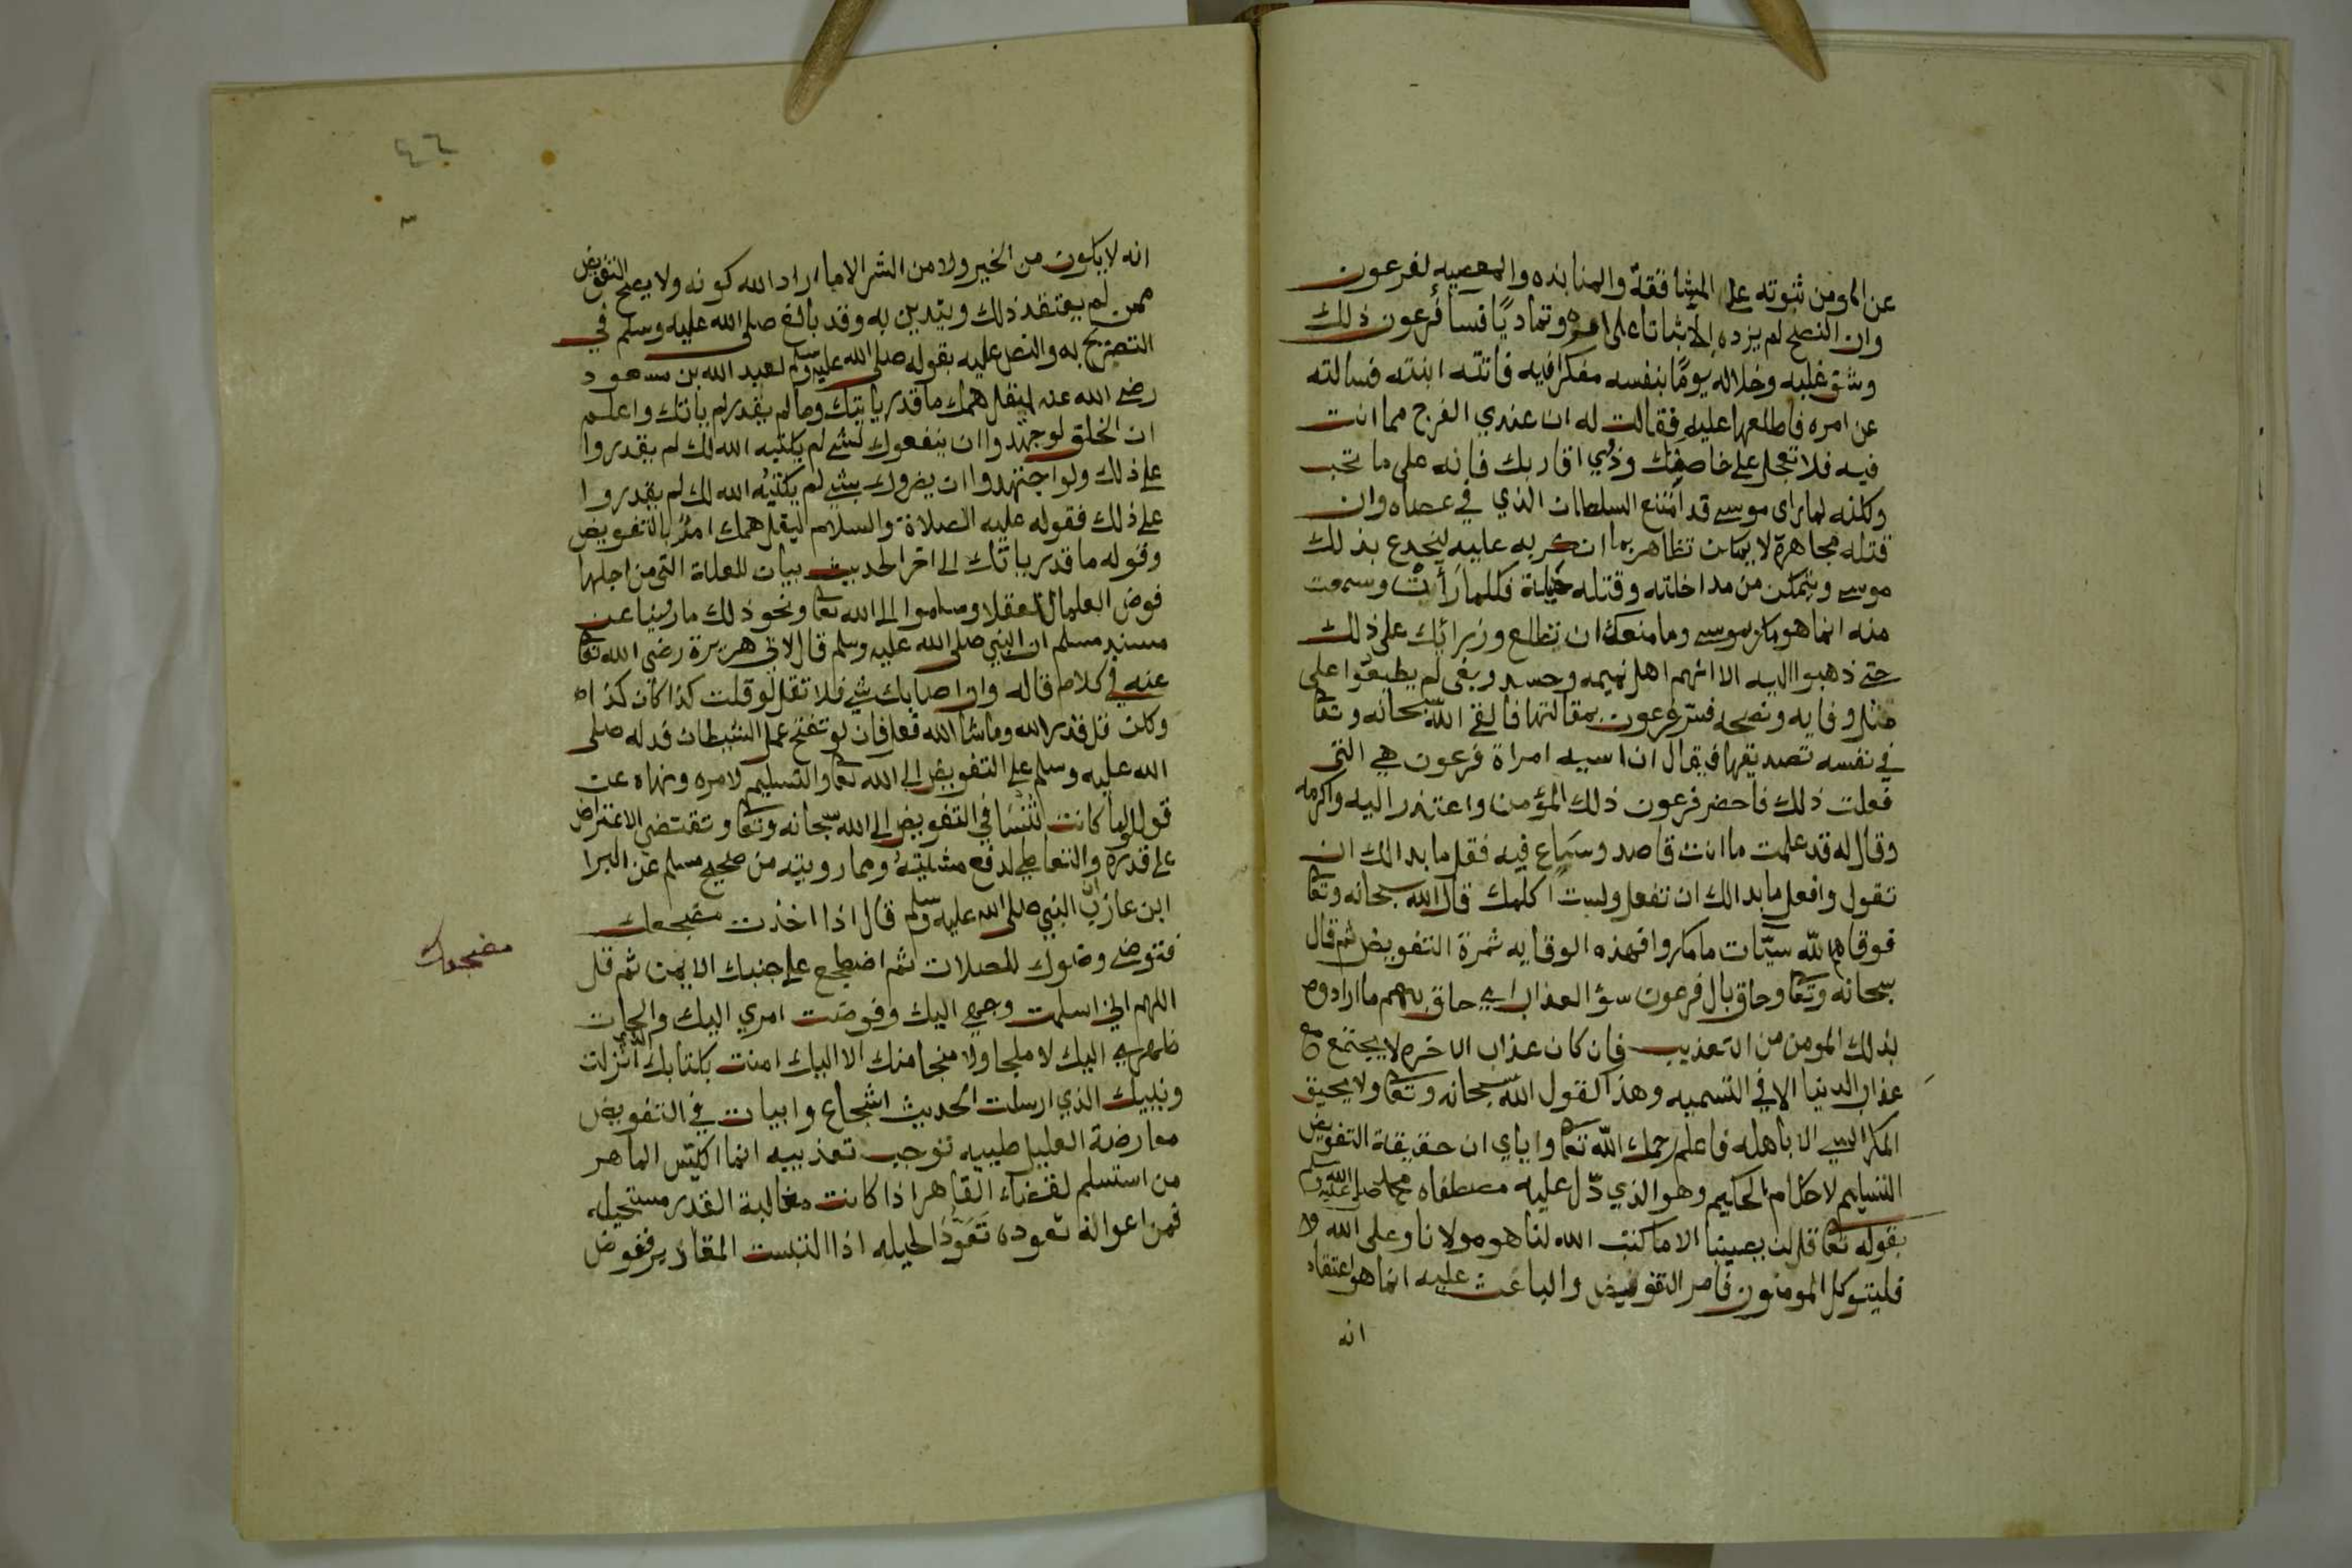 عن المومن ثبوته على المشاققة والمنابذه والمعصيه لفرعون
وان النصح لم يزده الا ثباتا على امره وتماديًا فسا فرعون ذلك
وشق عليه وخلاله يومًا بنفسه مفكرا فيه فاتته ابنته فسالته
عن امره فاطلعها عليه فقالت له ان عندي الفرج مما انت
فيه فلا تعجل على خاصتك وذوي اقاربك فانه على ما تحب
ولكنه لما راى موسى قد امتنع السلطان الذي في عصاه وان
قتله مجاهرة لا يمكن تظاهر بما انكر به عليه ليخدع بذلك
موسى ويتمكن من مداخلته وقتله غيلة فكلما رأيت وسمعت
منه انما هو مكر بموسى وما منعك ان تطلع وزرائك على ذلك
حتى ذهبوا اليه الا انهم اهل نميمه وحسد وبغى لم يطيقوا على
مثل وفايه ونصحه فسر فرعون بمقالتها فالقى الله سبحانه وتعا
في نفسه تصديقها فيقال ان اسيه امراة فرعون هي التى
فعلت ذلك فاحضر فرعون ذلك المؤمن واعتذر اليه واكرمه
وقال له قد علمت ما انت قاصد وساع فيه فقل ما بدا لك ان
تقول وافعل ما بدا لك ان تفعل ولست اكلمك قال الله سبحانه وتعا
فوقاه الله سيّات ما مكروا فهذه الوقايه ثمرة التفويض ثم قال
سبحانه وتعا وحاق بال فرعون سؤ العذاب اي حاق بهم ما ارادوه
بذلك المومن من التعذيب فان كان عذاب الاخره لا يجتمع مع
عذاب الدنيا الا في التسميه وهذا لقول الله سبحانه وتعا ولا يحيق
المكر السي الا باهله فاعلم رحمك الله تعا واياي ان حقيقة التفويض
التسليم لاحكام الحكيم وهو الذي دّل عليه مصطفاه محمد صلى الله عليه وسلم
بقوله تعا قل لن يصيبنا الا ما كتب الله لنا هو مولانا وعلى الله
فليتوكل المومنون فاصر التفويض والباعث عليه انما هو اعتقاد
انه
٤٦
انه لا يكون من الخير ولا من الشر الا ما اراد الله كونه ولا يصح التفويض
ممن لم يعتقد ذلك ويتدين به وقد بالغ صلى الله عليه وسلم في
التصريح به والنص عليه بقوله صلى الله عليه وسلم لعبد الله بن مسعود
رضى الله عنه ليقل همك ما قدر ياتيك وما لم يقدر لم ياتك واعلم
ان الخلق لو جهدوا ان ينفعوك بشي لم يكتبه الله لك لم يقدروا
على ذلك ولو اجتهدوا ان يضروك بشي لم يكتبه الله لك لم يقدروا
على ذلك فقوله عليه الصلاة والسلام ليقل همك امر بالتفويض
وقوله ما قدر ياتك الى اخر الحديث بيان للعلة التى من اجلها
فوض العلما العقلا وسلموا الى الله تعا ونحو ذلك ما روينا عن
مسند مسلم ان النبي صلى الله عليه وسلم قال لابي هريرة رضى الله تعا
عنه في كلام قاله وان اصابك شي فلا تقل لو قلت كذا كان كذا
ولكن قل قدر الله وما شا الله فعل فان لو تفتح عمل الشيطان فدله صلى
الله عليه وسلم على التفويض الى الله تعا والتسليم لامره ونهاه عن
قول لو لما كانت تنسا في التفويض الى الله سبحانه وتعا وتقتضي الاعتراض
على قدره والتعاطي لدفع مشيئته ومما رويته من صحيح مسلم عن البرا
ابن عازب ان النبي صلى الله عليه وسلم قال اذا اخذت مضجعك
فتوضى وضوك للصلات ثم اضطجع على جنبك الايمن ثم قل
اللهم اني اسلمت وجهي اليك وفوضت امري اليك والجات
ظهري اليك لا ملجا ولا منجا منك الا اليك امنت بكتابك الذي انزلت
ونبيك الذي ارسلت الحديث اشجاع وابيات في التفويض
معارضة العليل طبيبه توجب تعذيبه انما الكيّس الماهر
من استسلم لقضاء القاهر اذا كانت مغالبة القدر مستحيله
فمن اعوانه تعوده الحيله اذا التبست المقادير ففوض
مضجعك